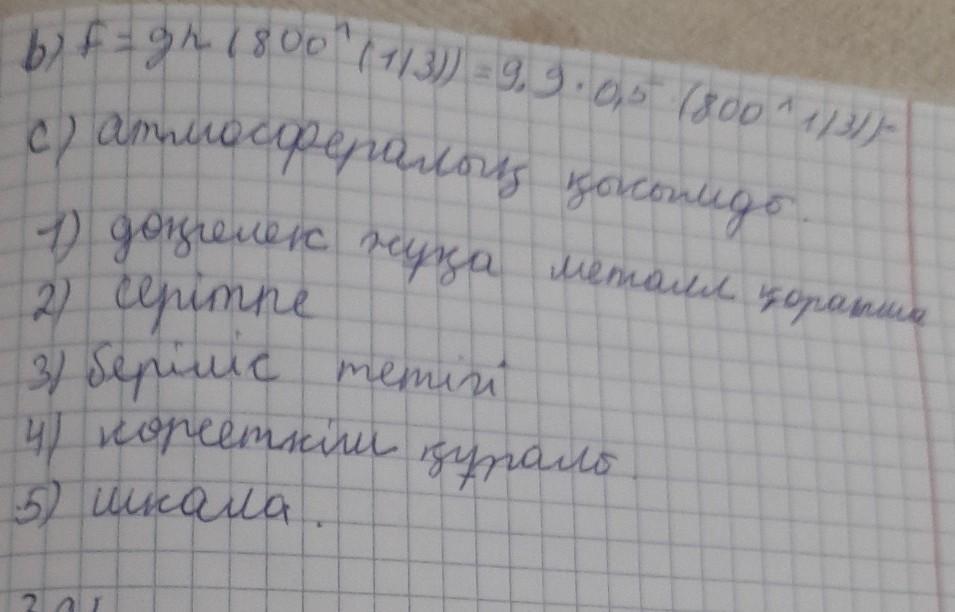 b) F = gh (800^(1/3)) = 9,9 · 0,5 (800^1/3)
c) атмосфералық қысымды.
1) дөңгелек жұқа металл қорапша
2) серіппе
3) беріліс тетігі
4) көрсеткіш құралы
5) шкала.